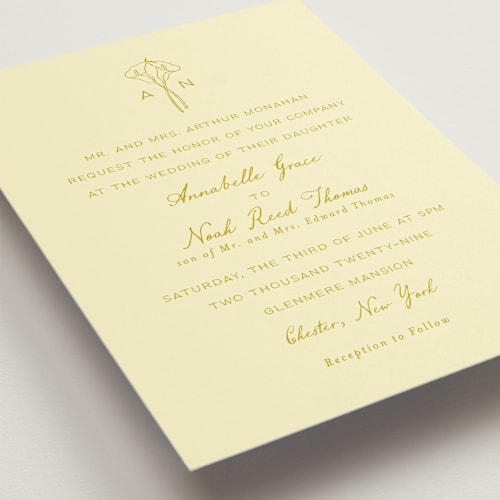 A N
MR. AND MRS. ARTHUR MONAHAN
REQUEST THE HONOR OF YOUR COMPANY
AT THE WEDDING OF THEIR DAUGHTER
Annabelle Grace
TO
Noah Reed Thomas
son of Mr. and Mrs. Edward Thomas
SATURDAY, THE THIRD OF JUNE AT 5PM
TWO THOUSAND TWENTY-NINE
GLENMERE MANSION
Chester, New York
Reception to Follow